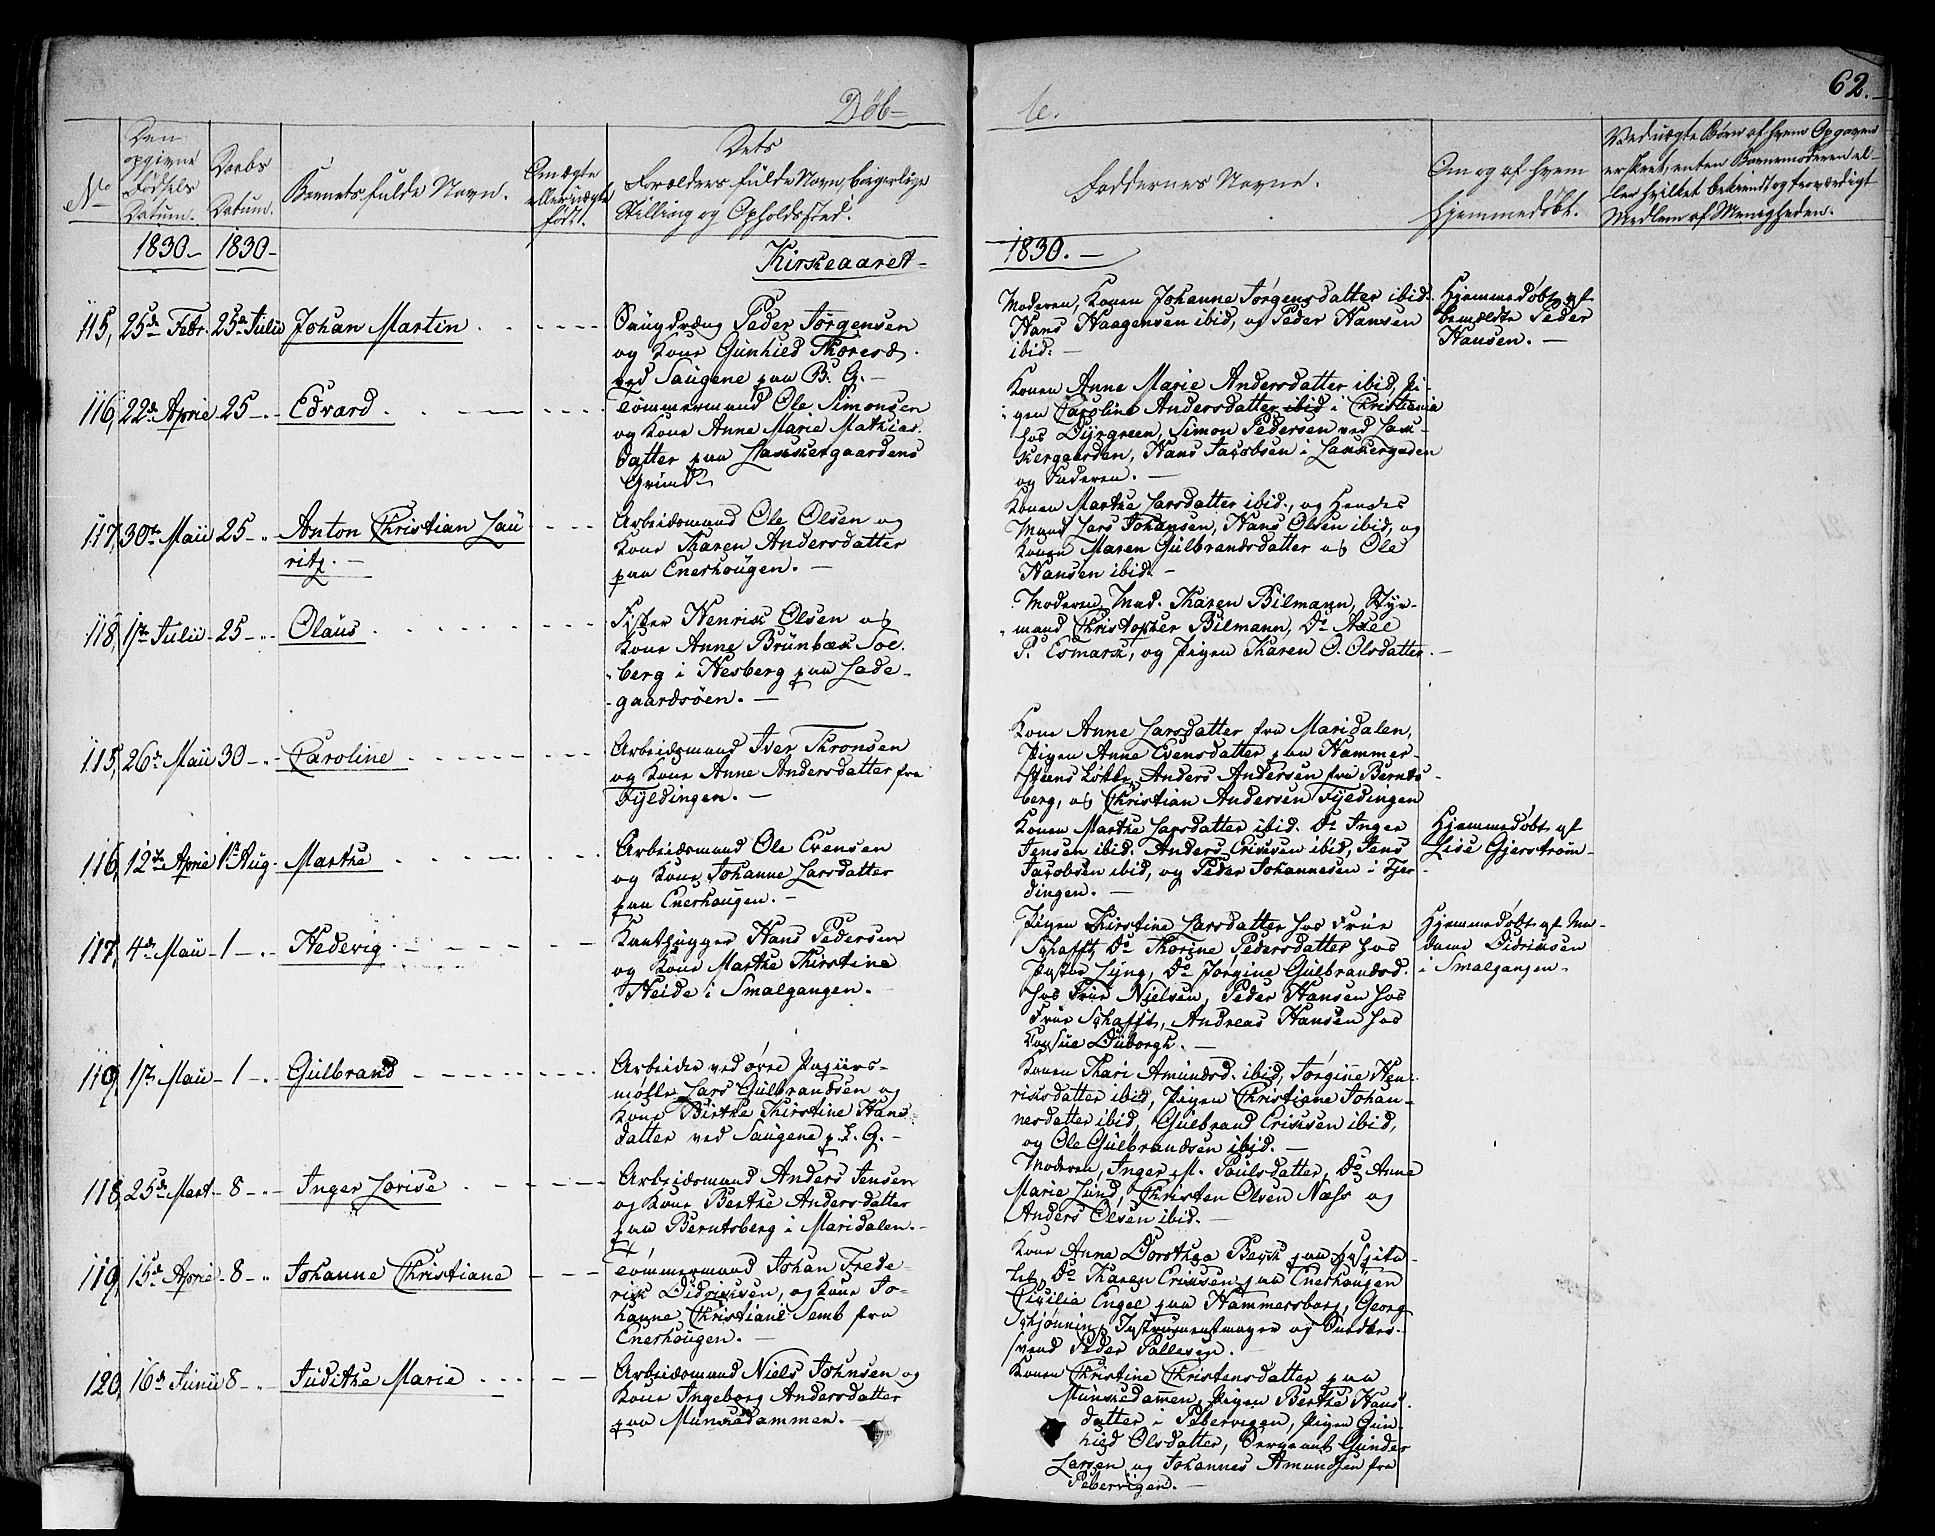 62.
Døb-
te.
No
Den
opgivne
Fødsels
Datum.
Daabs
Datum.
Barnets fulde Navn.
Om ægte
eller uægte
født.
Dets
Forældres fulde Navn, borgerlige
Stilling og Opholdssted.
Faddernes Navne.
Om og af hvem
hjemmedøbt.
Ved uægte Børn af hvem Opgaven
er skeet, enten Barnemoderen el-
ler hvilket bekiendt og troværdigt
Medlem af Menigheden.
1830- 1830-
Kirkeaaret-
1830. -
115, 25de Febr. 25de Julii Johan Martin
Saugdreng Peder Jørgensen
og Kone Gunhild Thoresd.
ved Saugene paa B. G. -
Moderen, Konen Johanne Jørgensdatter ibid.
Hans Haagensen ibid, og Peder Hansen
ibid. -
Hjemmedøbt af
bemældte Peder
Hansen. -
116, 22de April 25 - Edvard
Tømmermand Ole Simonsen
og Kone Anne Marie Mathias
datter paa Lakkergaardens
Grund
Konen Anne Marie Andersdatter ibid, Pi-
gen Caroline Andersdatter ibid i Christiania
hos Dyrgreen, Simon Pedersen ved Lak-
kergaarden, Hans Jacobsen i Lakkergaden
og Faderen. -
117, 30te Maii 25 - Anton Christian Lau
ritz. -
Arbeidsmand Ole Olsen og
Kone Karen Andersdatter
paa Enerhougen. -
Konen Marthe Larsdatter ibid., og hendes
Mand Lars Johansen, Hans Olsen ibid, og
Konen Maren Gulbrandsdatter og Ole
Hansen ibid. -
118, 1ste Julii - 25 - Olaus
Fisker Henrik Olsen og
Kone Anne Brunbæk Sol
berg i Hesberg paa Lade-
gaardsøen. -
Moderen, Mad. Karen Bilmann, Styr-
mand Christopher Bilmann, Do Axel
P. Esmark, og Pigen Karen O. Olsdatter. -
115, 26de Maii 30 - Caroline
Arbeidsmand Iver Thronsen
og Kone Anne Andersdatter fra
Fyldingen. -
Kone Anne Larsdatter fra Maridalen,
Pigen Anne Evensdatter paa Hammer-
steens Løkke, Anders Andersen fra Bernts-
berg, og Christian Andersen Fyeldingen
116, 12te April 1ste Aug. Marthe
Arbeidsmand Ole Evensen
og Kone Johanne Larsdatter
paa Enerhaugen. -
Konen Marthe Larsdatter ibid. Do Inger
Jensen ibid. Anders Eriksen ibid, Jens
Jacobsen ibid, og Peder Johannesen i Fjer-
dingen. -
Hjemmedøbt af
Lise Gjerstrøm-
117, 4de Maii - 1 - Hedevig
Kanthugger Hans Pedersen
og Kone Marthe Kirstine
Heide i Smalgangen. -
Pigen Kirstine Larsdatter hos Frue
Schafft, Do Thorine Pedersdatter hos
Pastor Lyng, Do Jorgine Gulbrandsd.
hos Frue Nielsen, Peder Hansen hos
Frue Schafft, Andreas Hansen hos
Consul Duborgh. -
Hjemmedøbt af Ma-
dame Didriksen
i Smalgangen-
119, 1ste Maii - 1 - Gulbrand
Arbeider ved øvre Papiirs-
mølle Lars Gulbrandsen og
Kone Birthe Kirstine Hans
datter ved Saugene p. L. G. -
Konen Kari Amundsd. ibid, Jørgine Hen-
riksdatter ibid, Pigen Christiane Johan-
nesdatter ibid, Gulbrand Eriksen ibid,
og Ole Gulbrandsen ibid. -
118, 25de Mart - 8 - Inger Lovise
Arbeidsmand Anders Jensen
og Kone Berthe Andersdatter
paa Berntsberg i Maridalen. -
Moderen, Inger M. Poulsdatter, Do Anne
Marie Lund, Christen Olsen Næss og
Anders Olsen ibid. -
119, 15de April - 8 - Johanne Christiane
Tømmermand Johan Frede-
rik Didriksen, og Kone Jo-
hanne Christiane Semb fra
Enerhougen. -
Kone Anne Dorothea Berk paa Hospita-
let, Do Karen Eriksen paa Enerhougen
Cicilia Engel paa Hammersborg, Georg
Schjønning Instrumentmager og Snedker-
svend Peder Pallesen. -
120, 16de Junii 8 - Judithe Marie
Arbeidsmand Niels Johnsen og
Kone Ingeborg Andersdatter
paa Munkedammen. -
Konen Christine Christensdatter paa
Munkedammen, Pigen Berthe Hans
datter i Pebervigen, Pigen Gun-
hild Olsdatter, Sergeant Gunder
Larsen og Johannes Amundsen fra
Pebervigen. -